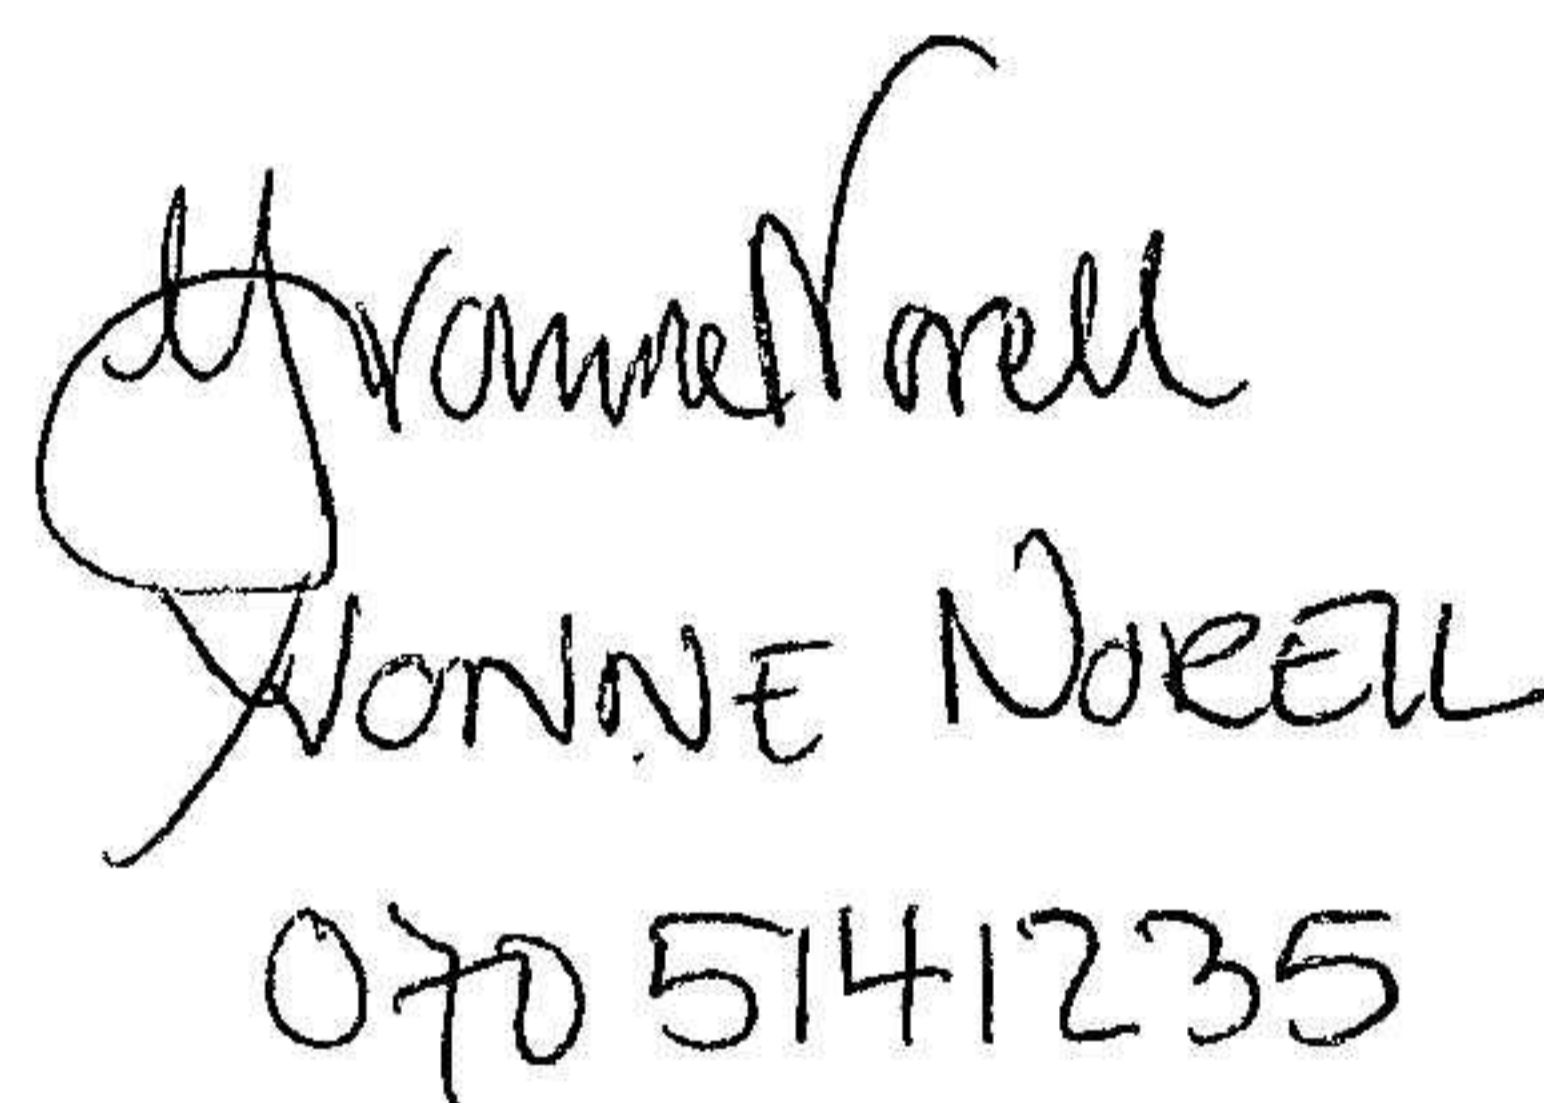 Yvonne Norell
YVONNE NORELL
070 5141235